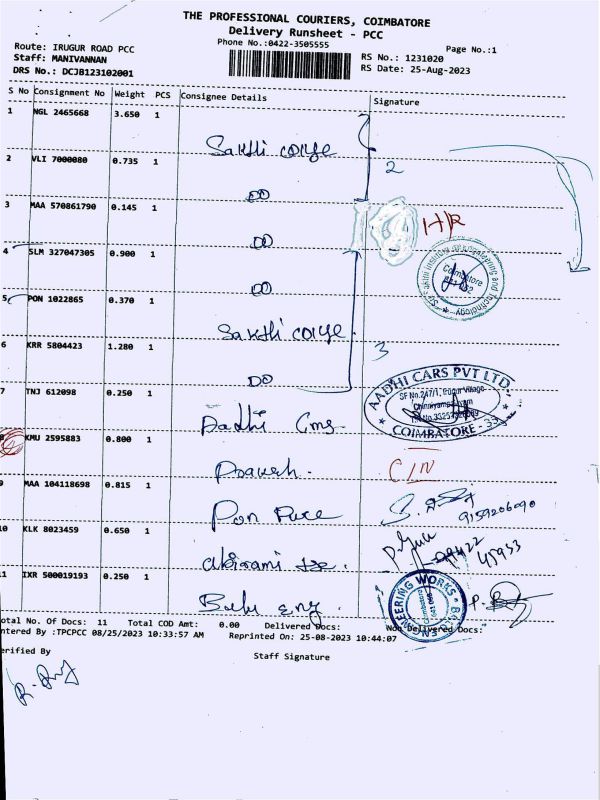 THE PROFESSIONAL COURIERS, COIMBATORE
Delivery Runsheet - PCC
Phone No.:0422-3505555
Page No.:1
Route: IRUGUR ROAD PCC
Staff: MANIVANNAN
DRS No.: DCJB123102001
RS No.: 1231020
RS Date: 25-Aug-2023
S No Consignment No Weight PCS Consignee Details Signature
1 NGL 2465668 3.650 1 Sakthi college
2 VLI 7000080 0.735 1 DO
2
3 MAA 570861790 0.145 1 DO
4 SLM 327047305 0.900 1 DO
5 PON 1022865 0.370 1 Sakthi college
6 KRR 5804423 1.280 1 DO
3
7 TNJ 612098 0.250 1 Aadhi Cars
AADHI CARS PVT LTD.
COIMBATORE
8 KMU 2595883 0.800 1 Prakash. C/N
9 MAA 104118698 0.815 1 Pon Pure
9159206090
10 KLK 8023459 0.650 1 Abirami
45933
11 IXR 500019193 0.250 1 Balu eng.
ENGINEERING WORKS
otal No. Of Docs: 11 Total COD Amt: 0.00 Delivered Docs: Non Delivered Docs:
ntered By :TPCPCC 08/25/2023 10:33:57 AM Reprinted On: 25-08-2023 10:44:07
erified By
Staff Signature